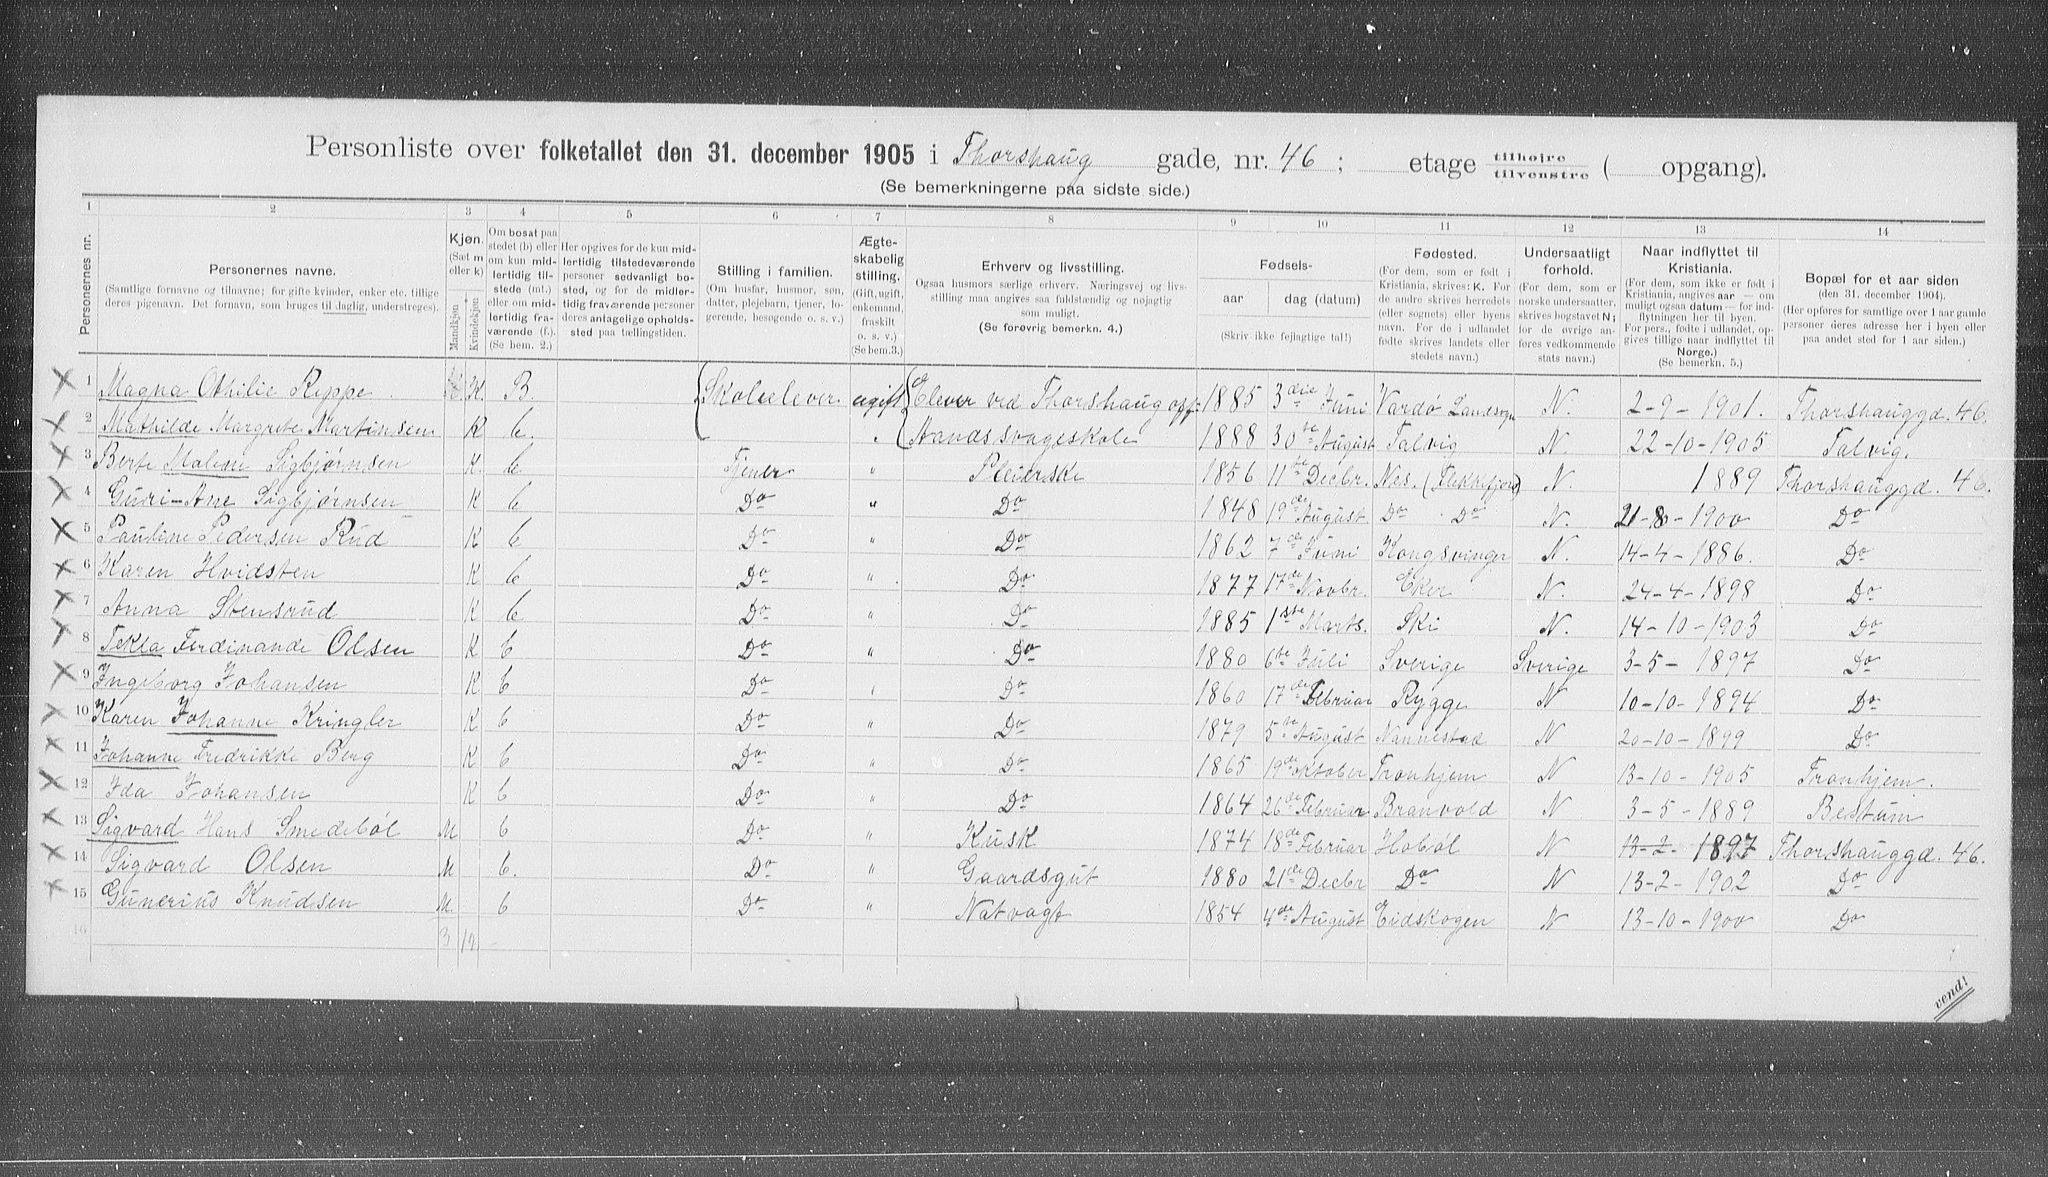 Personliste over folketallet den 31. december 1905 i Thorshaug gade, nr. 46; etage tilhøjre tilvenstre ( opgang).
(Se bemerkningerne paa sidste side.)
1 2 3 4 5 6 7 8 9 10 11 12 13 14
Personernes nr.
Personernes navne.
(Samtlige fornavne og tilnavne; for gifte kvinder, enker etc. tillige deres pigenavn. Det fornavn, som bruges til daglig, understreges).
Kjøn. (Sæt m eller k) Mandkjøn Kvindekjøn
Om bosat paa stedet (b) eller om kun midlertidig tilstede (mt.) eller om midlertidig fraværende (f.). (Se bem. 2.)
Her opgives for de kun midlertidig tilstedeværende personer sedvanligt bosted, og for de midlertidig fraværende personer deres antagelige opholdssted paa tællingstiden.
Stilling i familien.
(Om husfar, husmor, søn, datter, plejebarn, tjener, logerende, besøgende o. s. v.)
Ægteskabelig stilling.
(Gift, ugift, enkemand, fraskilt o. s. v.) (Se bem. 3.)
Erhverv og livsstilling.
Ogsaa husmors særlige erhverv. Næringsvej og livsstilling maa angives saa fuldstændig og nøjagtig som muligt.
(Se forøvrig bemerkn. 4.)
Fødsels-
aar dag (datum)
(Skriv ikke fejlagtige tal!)
Fødested.
(For dem, som er født i Kristiania, skrives: K. For de andre skrives herredets (eller sognets) eller byens navn. For de i udlandet fødte skrives landets eller stedets navn.)
Undersaatligt forhold.
(For dem, som er norske undersaatter, skrives bogstavet N; for de øvrige anføres vedkommende stats navn.)
Naar indflyttet til Kristiania.
(For dem, som ikke er født i Kristiania, angives aar — om muligt ogsaa datum — for indflytningen her til byen. For pers., fødte i udlandet, opgives tillige naar indflyttet til Norge.)
(Se bemerkn. 5.)
Bopæl for et aar siden
(den 31. december 1904).
(Her opføres for samtlige over 1 aar gamle personer deres adresse her i byen eller paa andet sted for 1 aar siden.)
1 Magna Othilie Rippe. K B. Skoleelever. ugift Elever ved Thorshaug opf- 1885 3die Juni Vardø Landsogn N. 2-9-1901. Thorshauggd. 46.
2 Mathilde Margrete Martinsen K b. " Aandssvageskole 1888 30te August Talvig N. 22-10-1905 Talvig.
3 Berte Malene Sigbjørnsen K. b Tjener " Pleierske 1856 11te Decbr. Nes. (Flekkefjord) N. 1889 Thorshauggd. 46.
4 Guri-Ane Sigbjørnsen K b Do " Do 1848 19de August. Do Do N. 21-8-1900 Do
5 Pauline Pedersen Rud K b Do " Do 1862 7de Juni Kongsvinger N. 14-4-1886. Do
6 Karen Hvidsten K b Do " Do 1877 17de Novbr. Eker N. 24-4-1898 Do
7 Anna Stensrud K b Do " Do 1885 1ste Marts. Ski N. 14-10-1903 Do
8 Tekla Ferdinande Olsen K b Do " Do 1880 6te Juli Sverige Sverige 3-5-1897 Do
9 Ingeborg Johansen K b Do " Do 1860 17de Februar Rygge N 10-10-1894 Do
10 Karen Johanne Kringler K b Do " Do 1879 5te August Nannestad N 20-10-1899 Do
11 Johanne Fredrikke Berg K b Do " Do 1865 19de Oktober Tronhjem N 13-10-1905 Tronhjem.
12 Ida Johansen K b Do " Do 1864 26de Februar Branvold N 3-5-1889 Bestum
13 Sigvard Hans Smedebøl M b Do " Kusk 1874 18de Februar Hobøl N 13-2-1897 Thorshauggd. 46.
14 Sigvard Olsen M b. Do " Gaardsgut 1880 21de Decbr Do N 13-2-1902 Do
15 Gunerius Knudsen M b Do " Natvagt 1854 4de August Eidskogen N 13-10-1900 Do
16 3 12
vend!